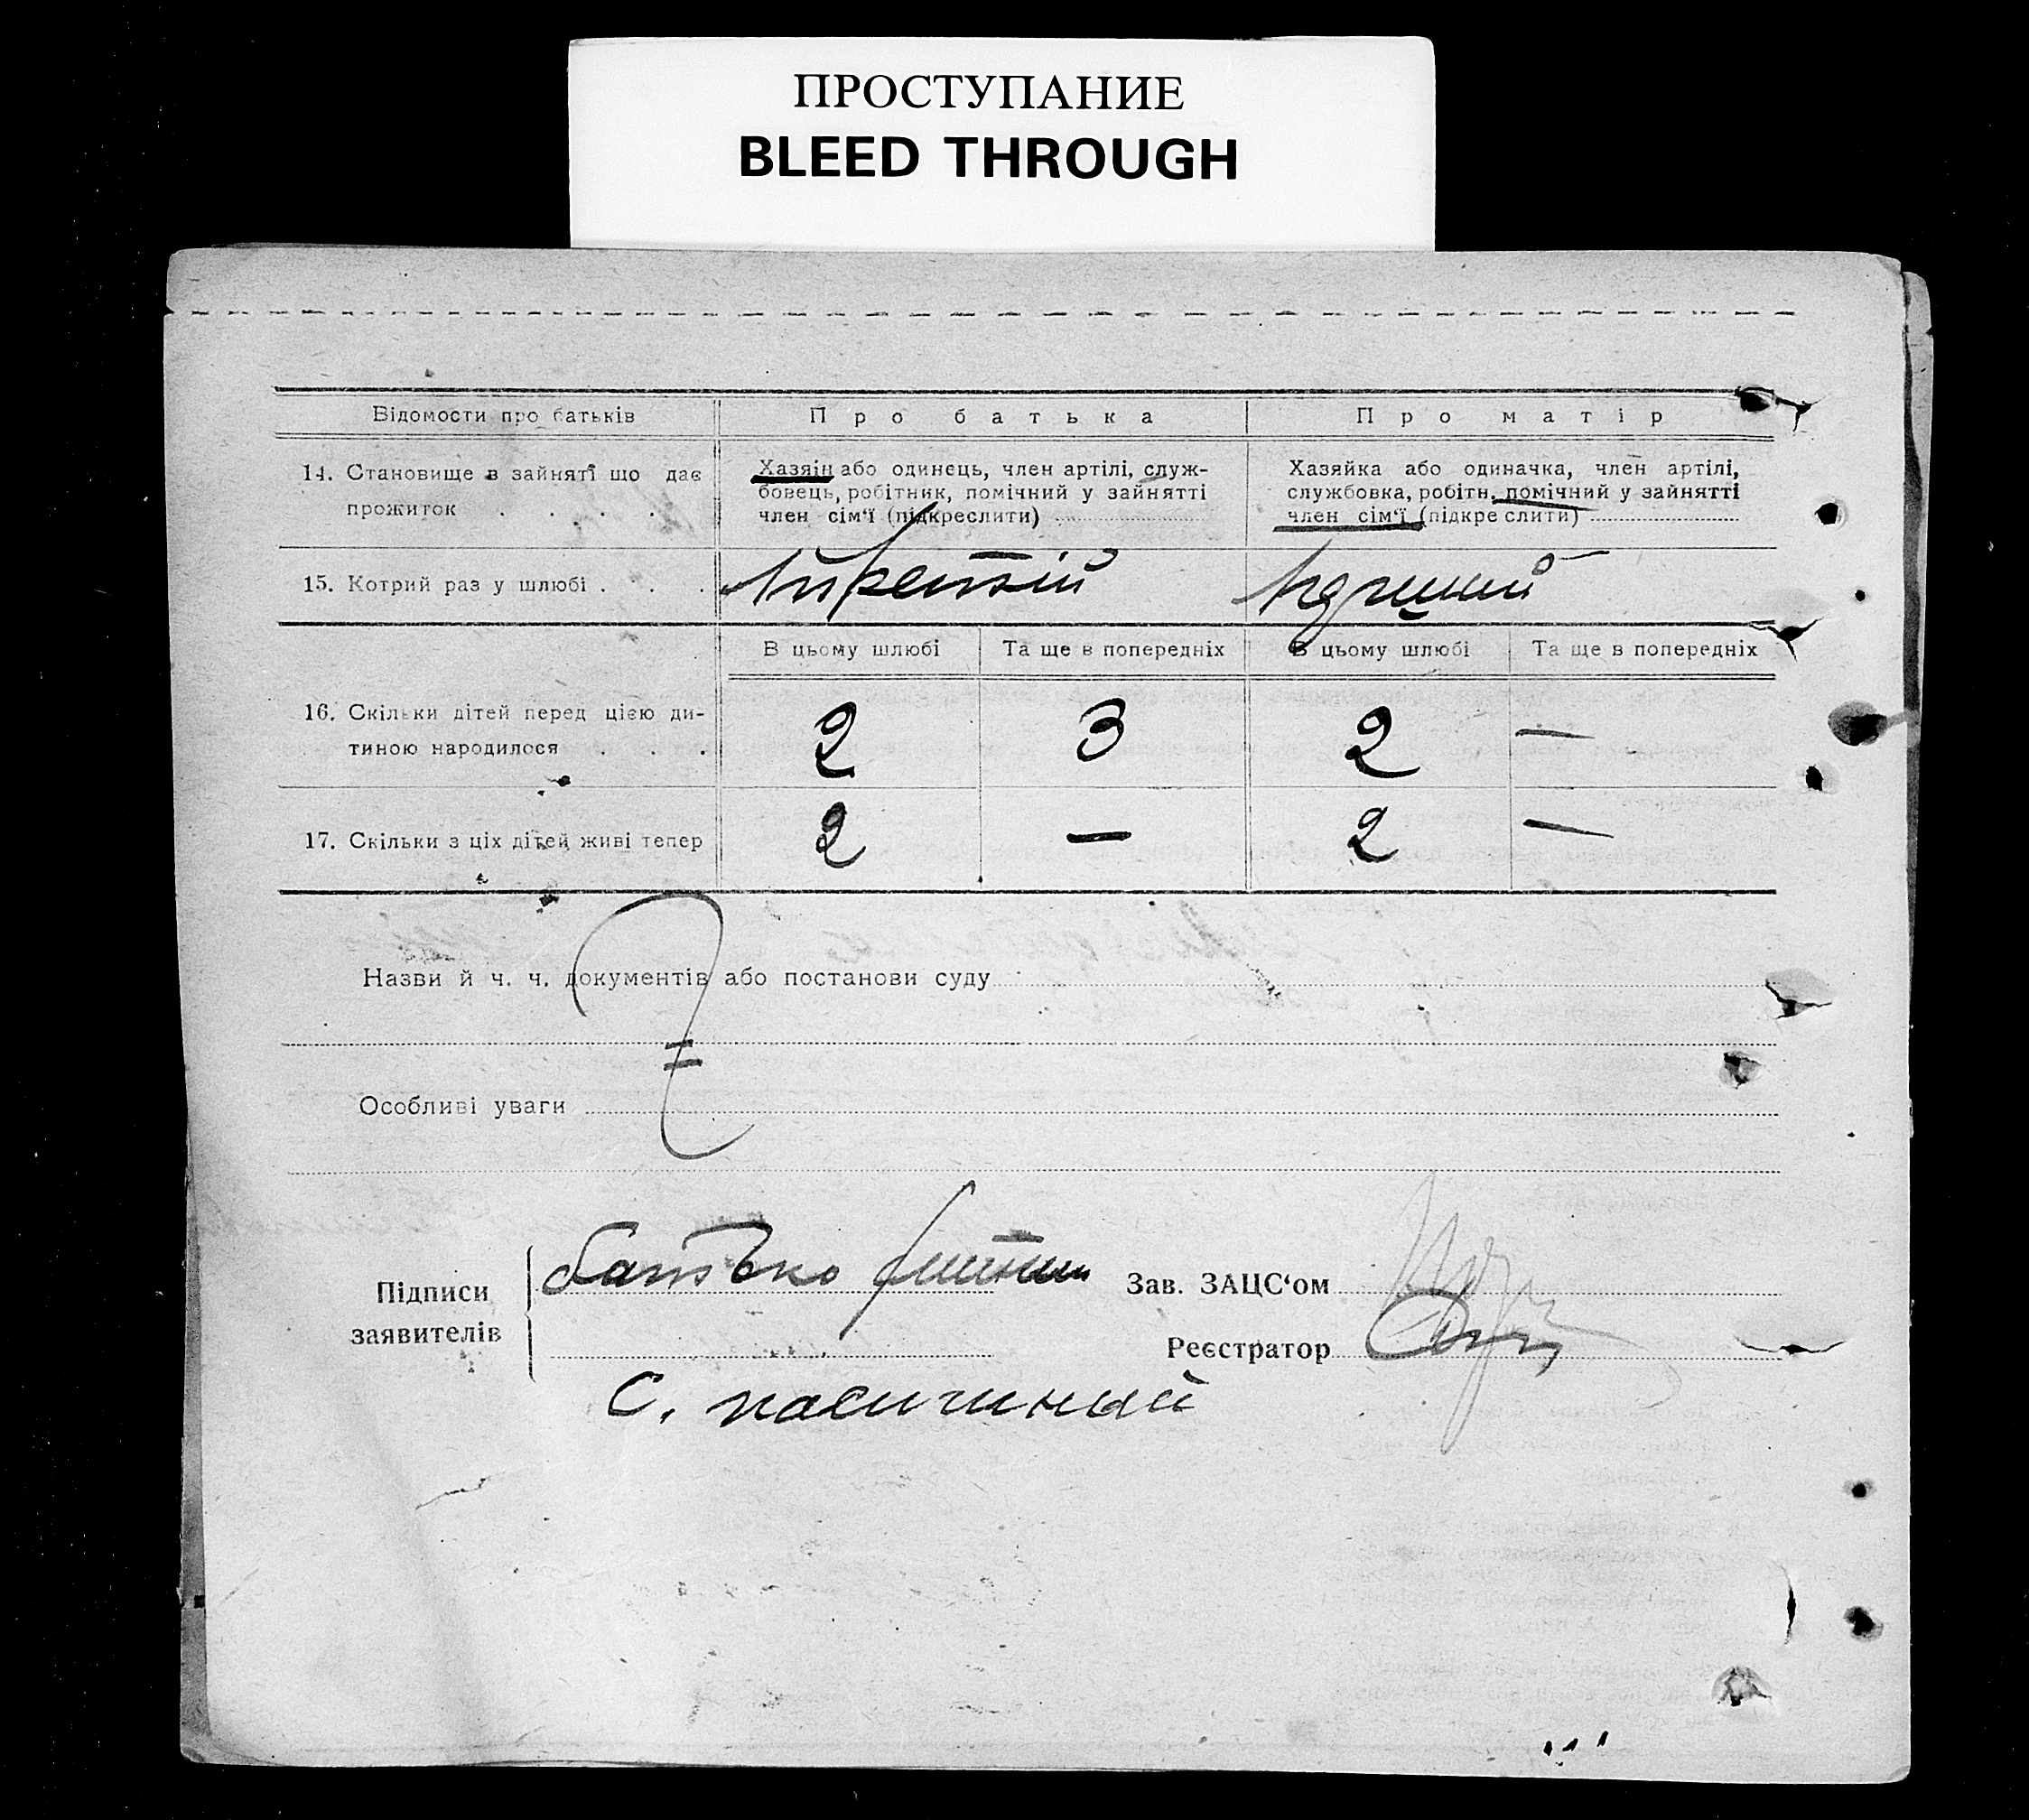 ПРОСТУПАНИЕ
BLEED THROUGH
Відомости про батьків
Про батька
Про матір
14. Становище в зайняті що дає
прожиток . . . .
Хазяїн або одинець, член артілі, служ-
бовець, робітник, помічний у зайнятті
член сім'ї (підкреслити)
Хазяйка або одиначка, член артілі,
службовка, робітн. помічний у зайнятті
член сім'ї (підкреслити)
15. Котрий раз у шлюбі . . .
В цьому шлюбі
Та ще в попередніх
В цьому шлюбі
Та ще в попередніх
16. Скільки дітей перед цією ди-
тиною народилося . . .
2
3
2
—
17. Скільки з ціх дітей живі тепер
2
—
2
—
Назви й ч. ч. документів або постанови суду
Особливі уваги
Підписи
заявителів
батько
Зав. ЗАЦС'ом
Реєстратор
С.